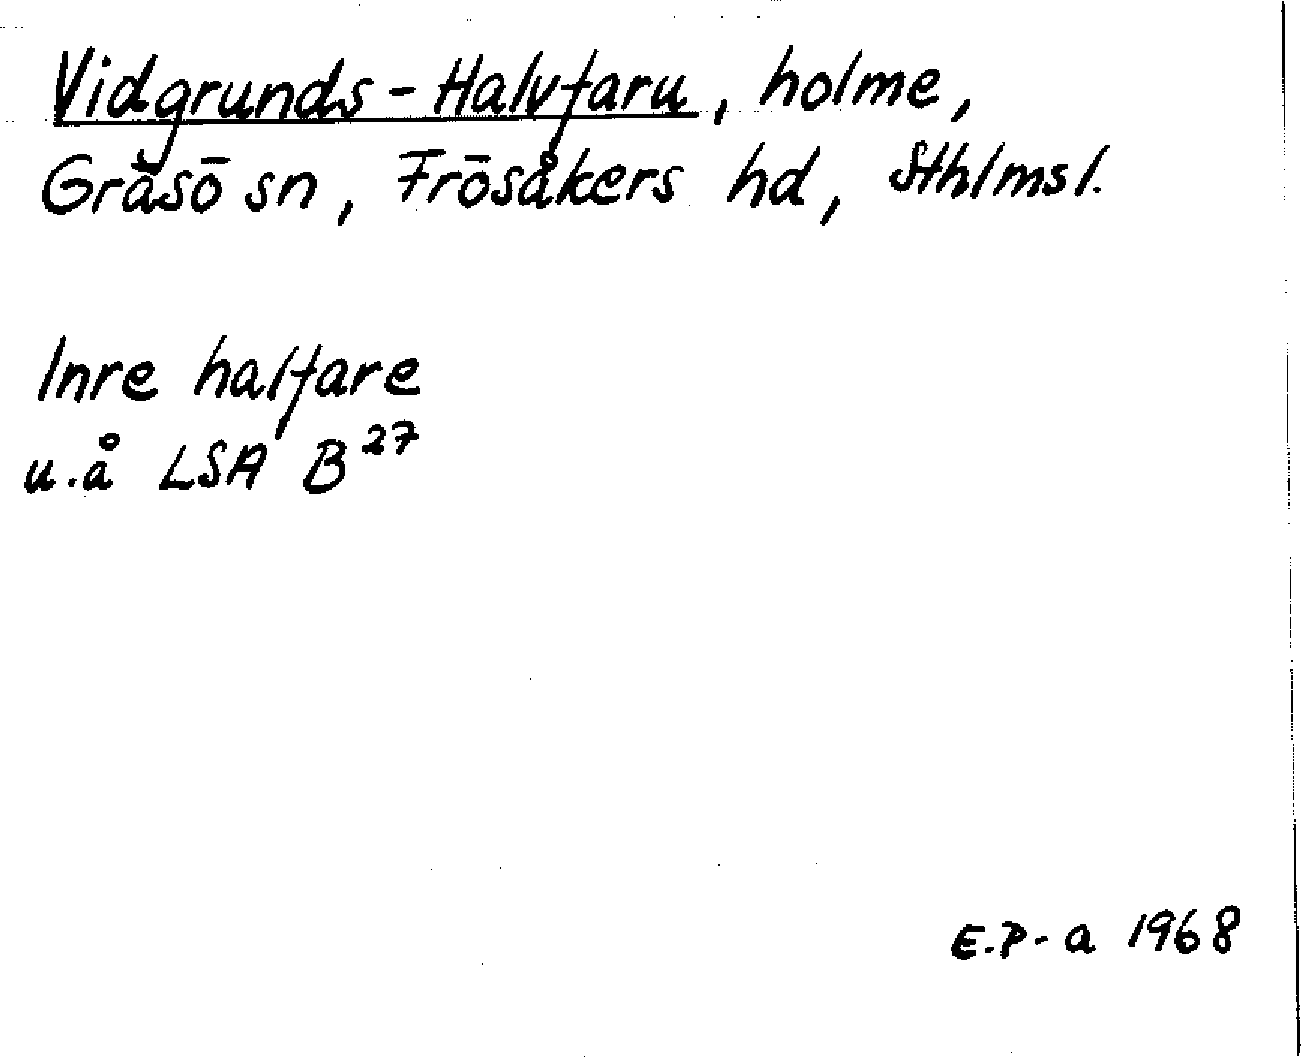 Vidgrunds-Halvfaru, holme,
Gräsö sn, Frösåkers hd, Sthlmsl.
Inre halfare
u.å LSA B27
E.P-a 1968